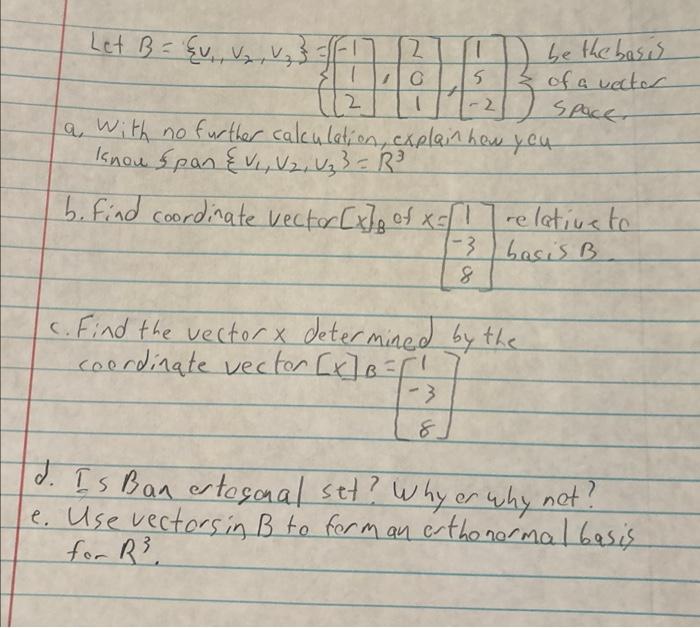 Let B = {v₁, v₂, v₃} = { [-1 1 2], [2 0 1], [1 5 -2] } be the basis of a vector space.
a, With no further calculation, explain how you
know span {v₁, v₂, v₃} = R³
b. Find coordinate vector [x]_B of x = [1 -3 8] relative to basis B.
c. Find the vector x determined by the
coordinate vector [x]_B = [1 -3 8]
d. Is B an ortogonal set? Why or why not?
e. Use vectors in B to form an orthonormal basis
for R³.